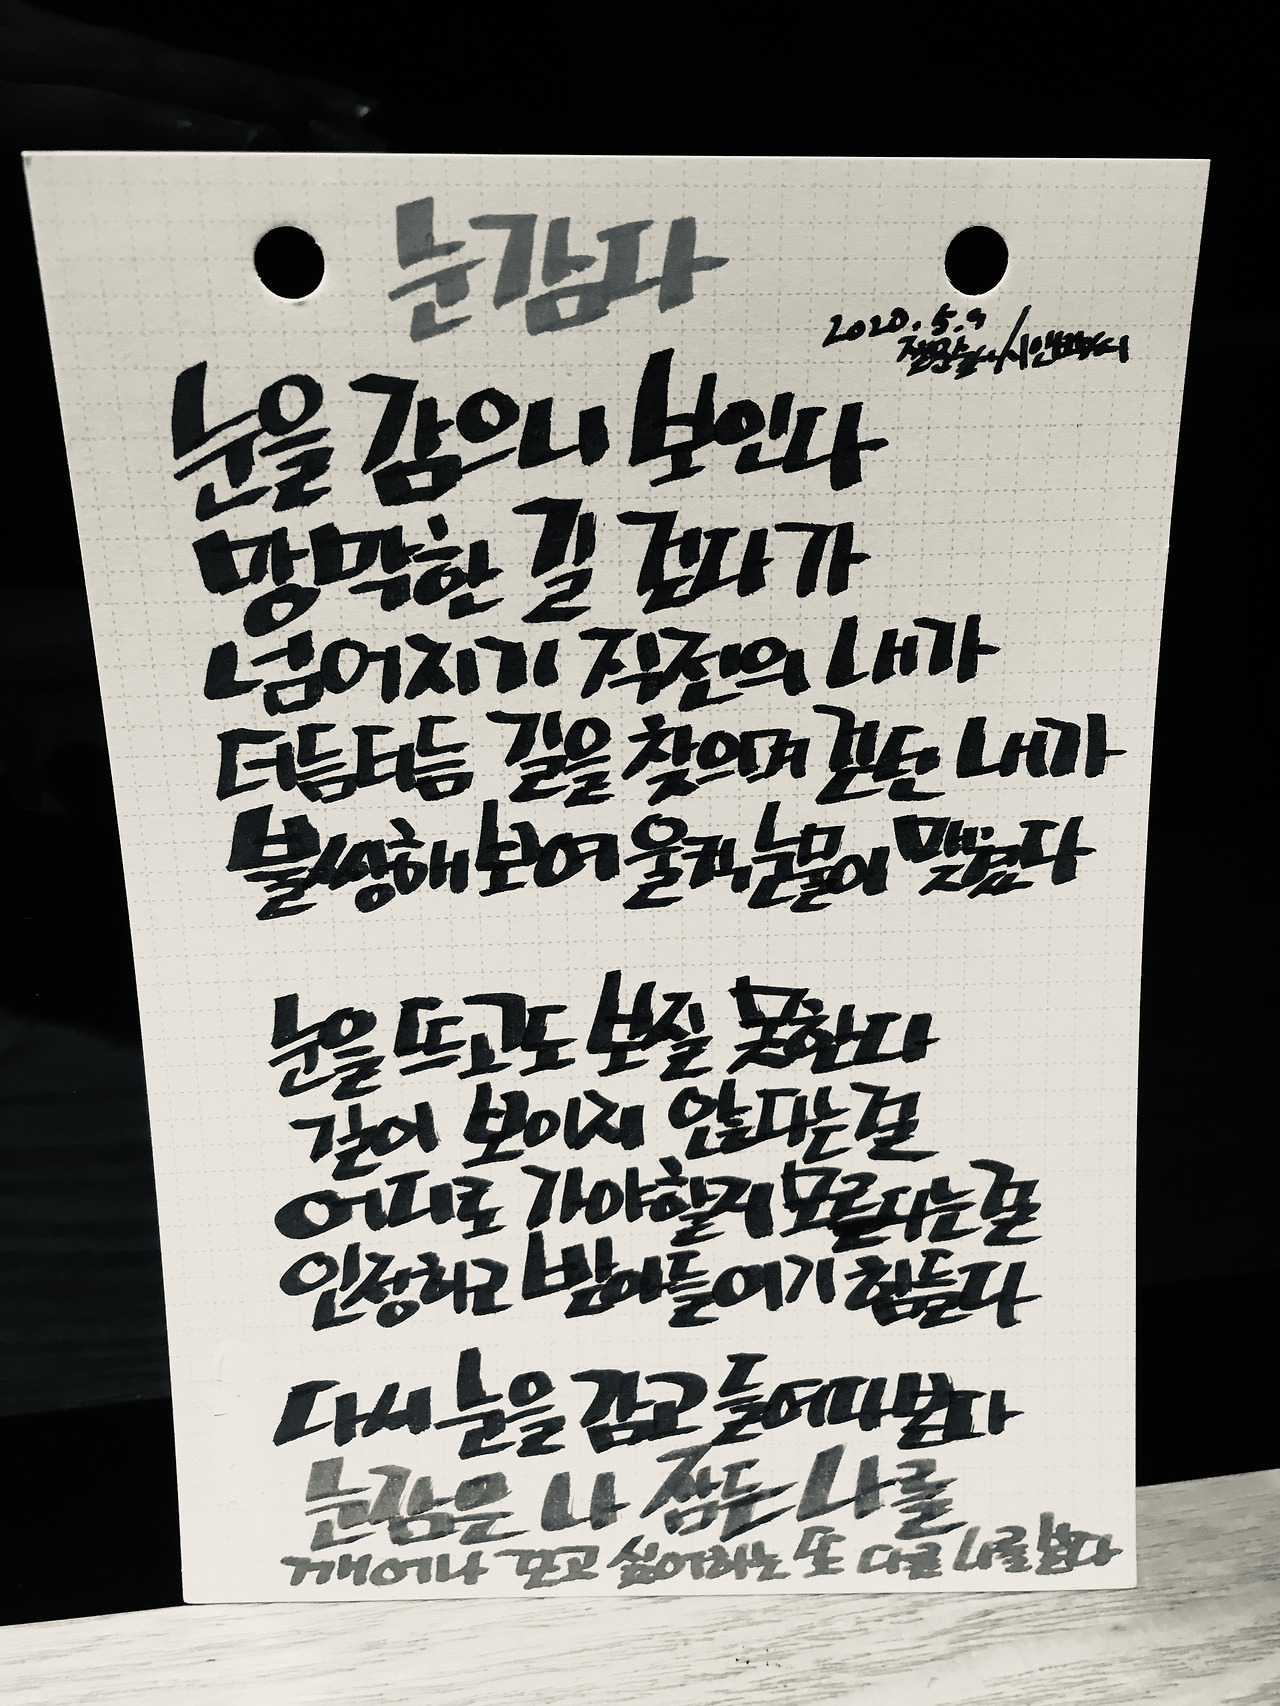 눈감다
2020.5.9
눈을 감으니 보인다
망막한 길 걷다가
넘어지기 직전의 내가
더듬더듬 길을 찾으며 걷던 내가
불쌍해 보여 울컥 눈물이 맺혔다
눈을 뜨고도 보질 못한다
길이 보이지 않는다는 걸
어디로 가야할지 모른다는 걸
인정하고 받아들이기 힘들다
다시 눈을 감고 들여다본다
눈감은 나 잠든 나를
깨어나 걷고 싶어하는 또 다른 나를 본다